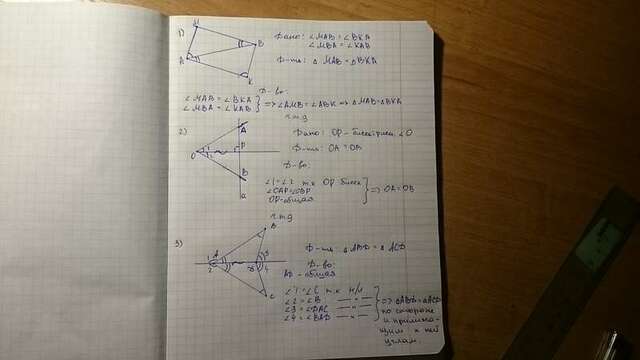 1)
M
A
B
K
Дано: ∠MAB = ∠BKA
∠MBA = ∠KAB
Д-ть: △ MAB = △ BKA
Д-во:
∠MAB = ∠BKA
∠MBA = ∠KAB
⇒ ∠AMB = ∠ABK ⇒ △MAB = △BKA
ч.т.д
2)
A
O
P
B
a
1
2
Дано: OP - биссектриса ∠O
Д-ть: OA = OB
Д-во:
∠1 = ∠2 т.к OP бисс
∠OAP = ∠OBP
OP - общая
⇒ OA = OB
ч.т.д
3)
A
1
2
3
4
C
Д-ть: △ ABD = △ ACD
Д-во:
AD - общая
∠1 = ∠C т.к н/л
∠2 = ∠B — " —
∠3 = ∠DAC — " —
∠4 = ∠BAD — " —
⇒ △ABD = △ACD
по стороне
и прилежа-
щим к ней
углам.